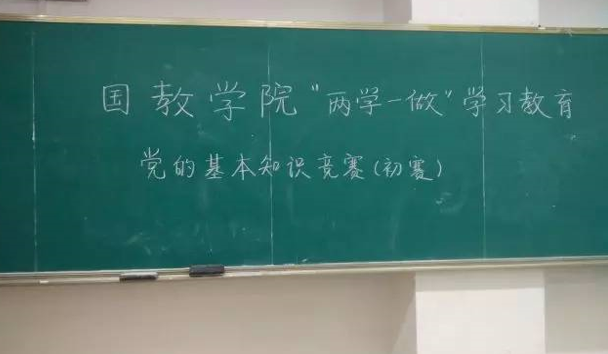 国教学院“两学一做”学习教育
党的基本知识竞赛(初赛)